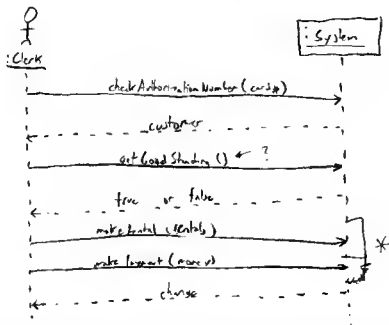 : System
: Clerk
checkAuthorizationNumber(card#)
customer
getGoodStanding() ?
true or false
makeRental(rentals)
make Payment(money)
change
*